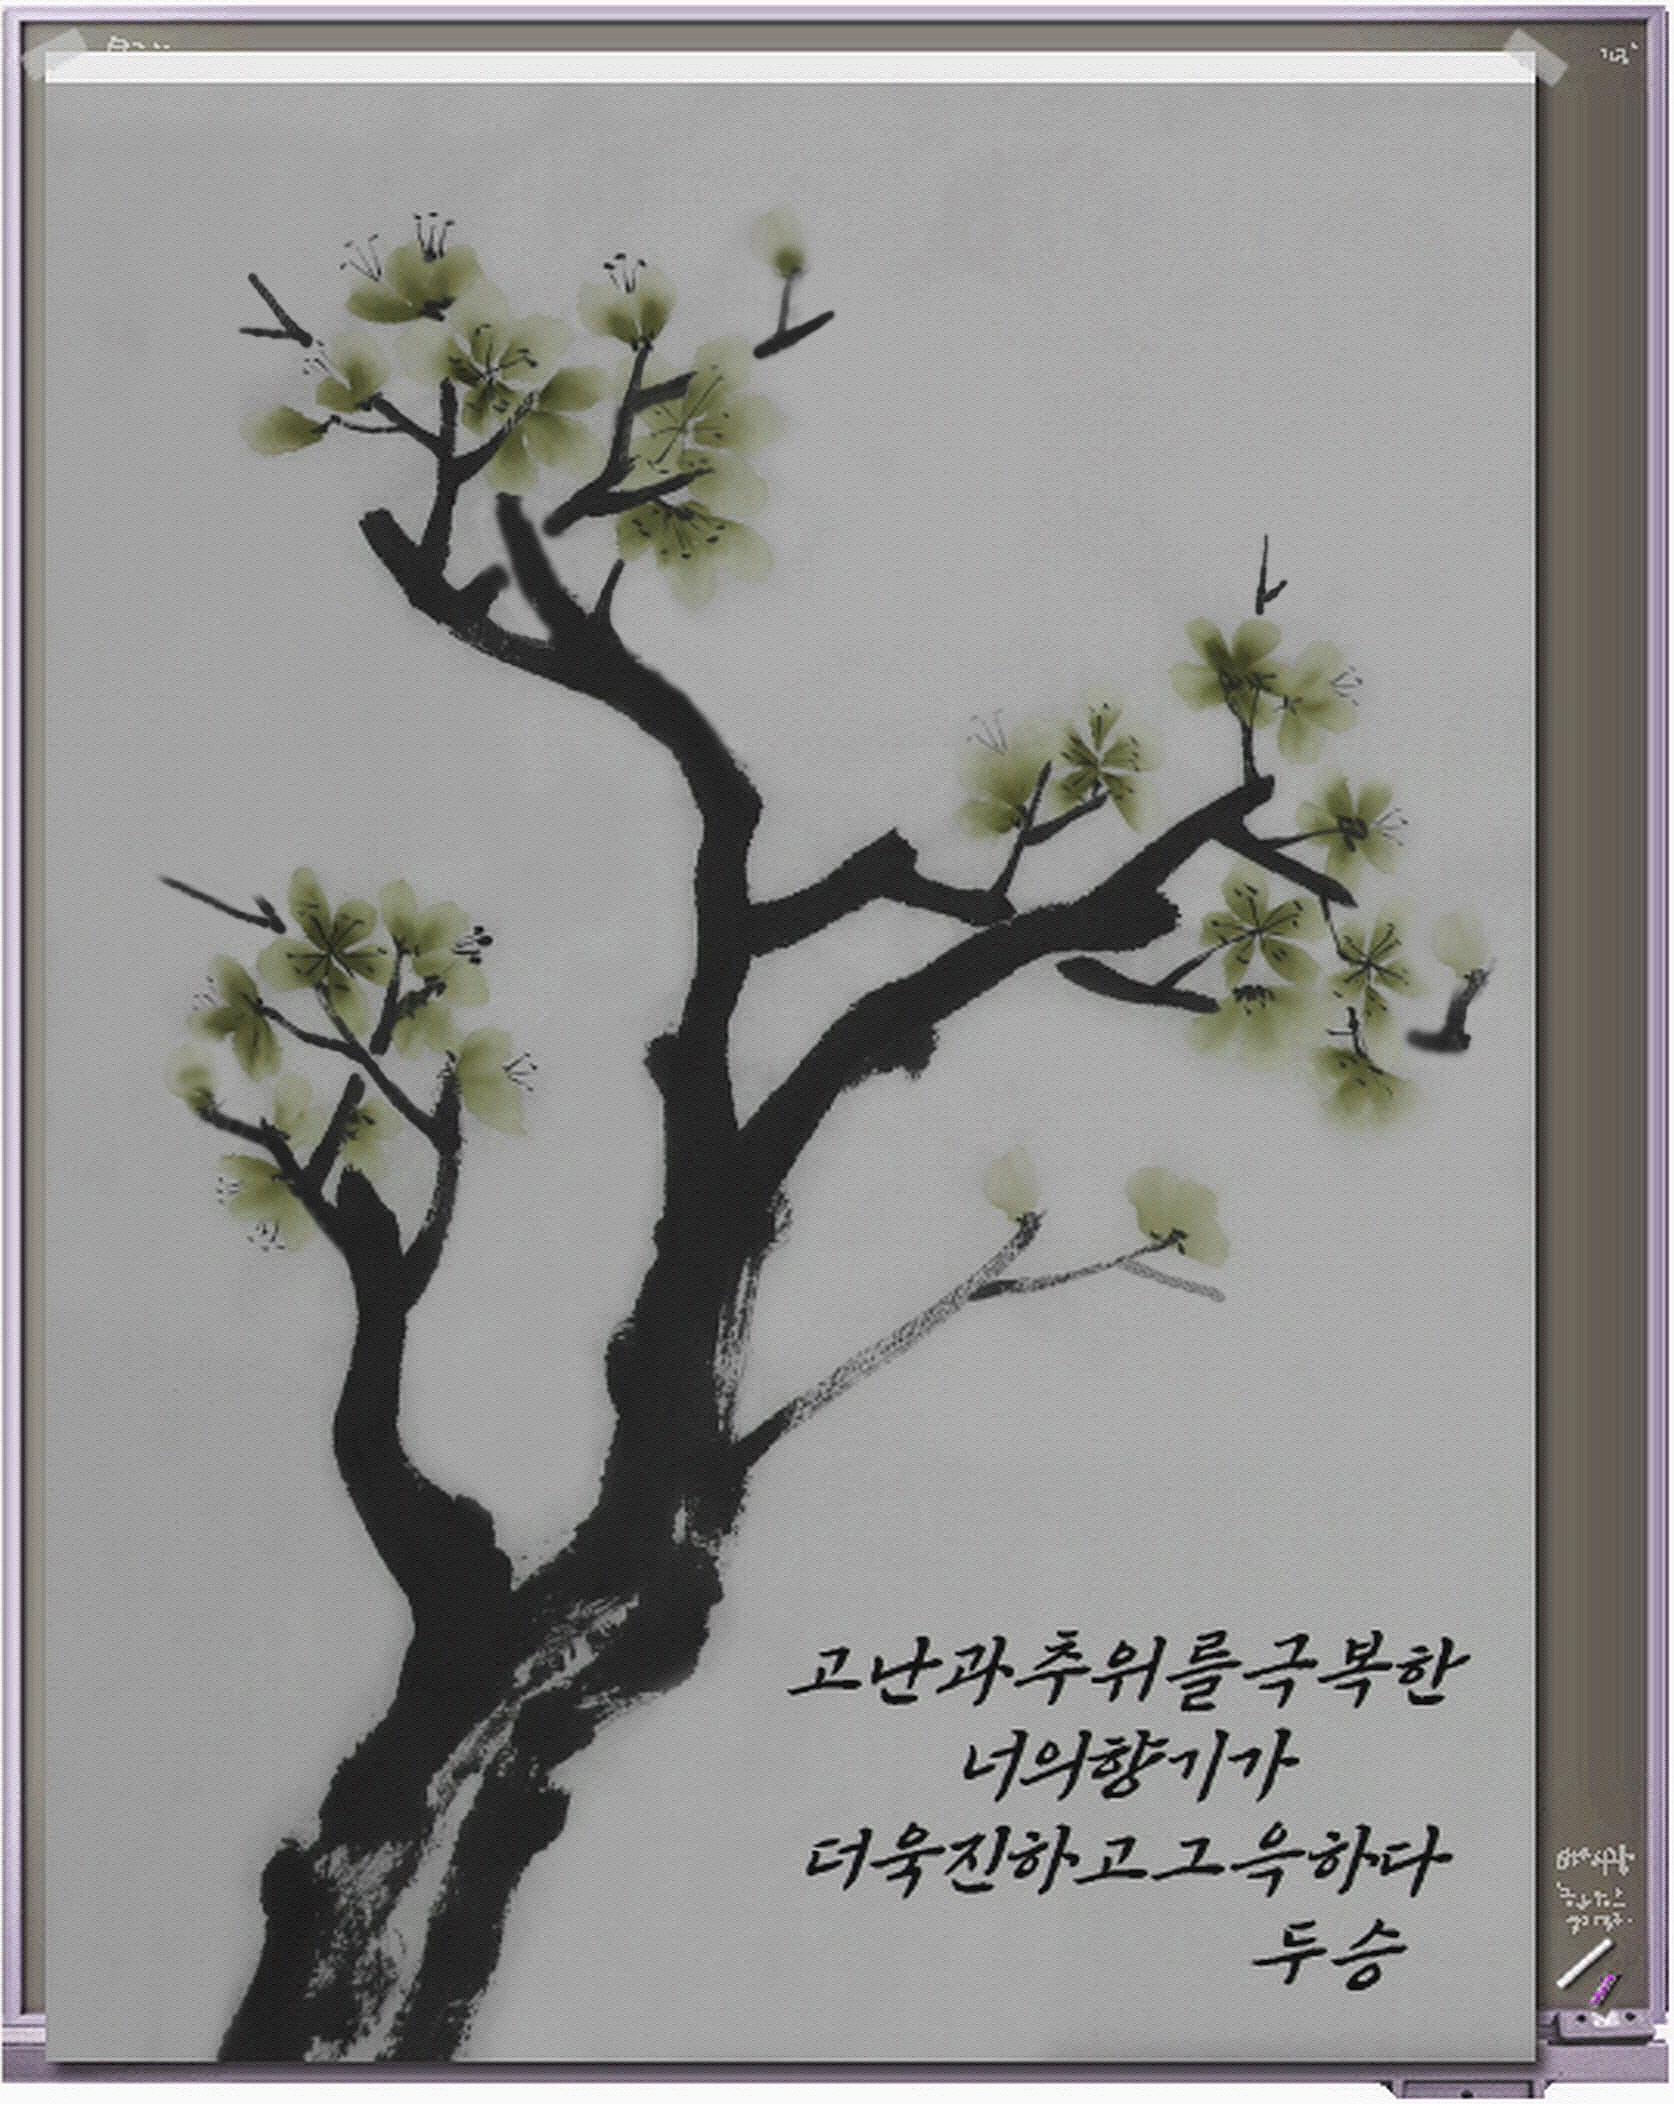 고난과추위를극복한
너의향기가
더욱진하고그윽하다
두승